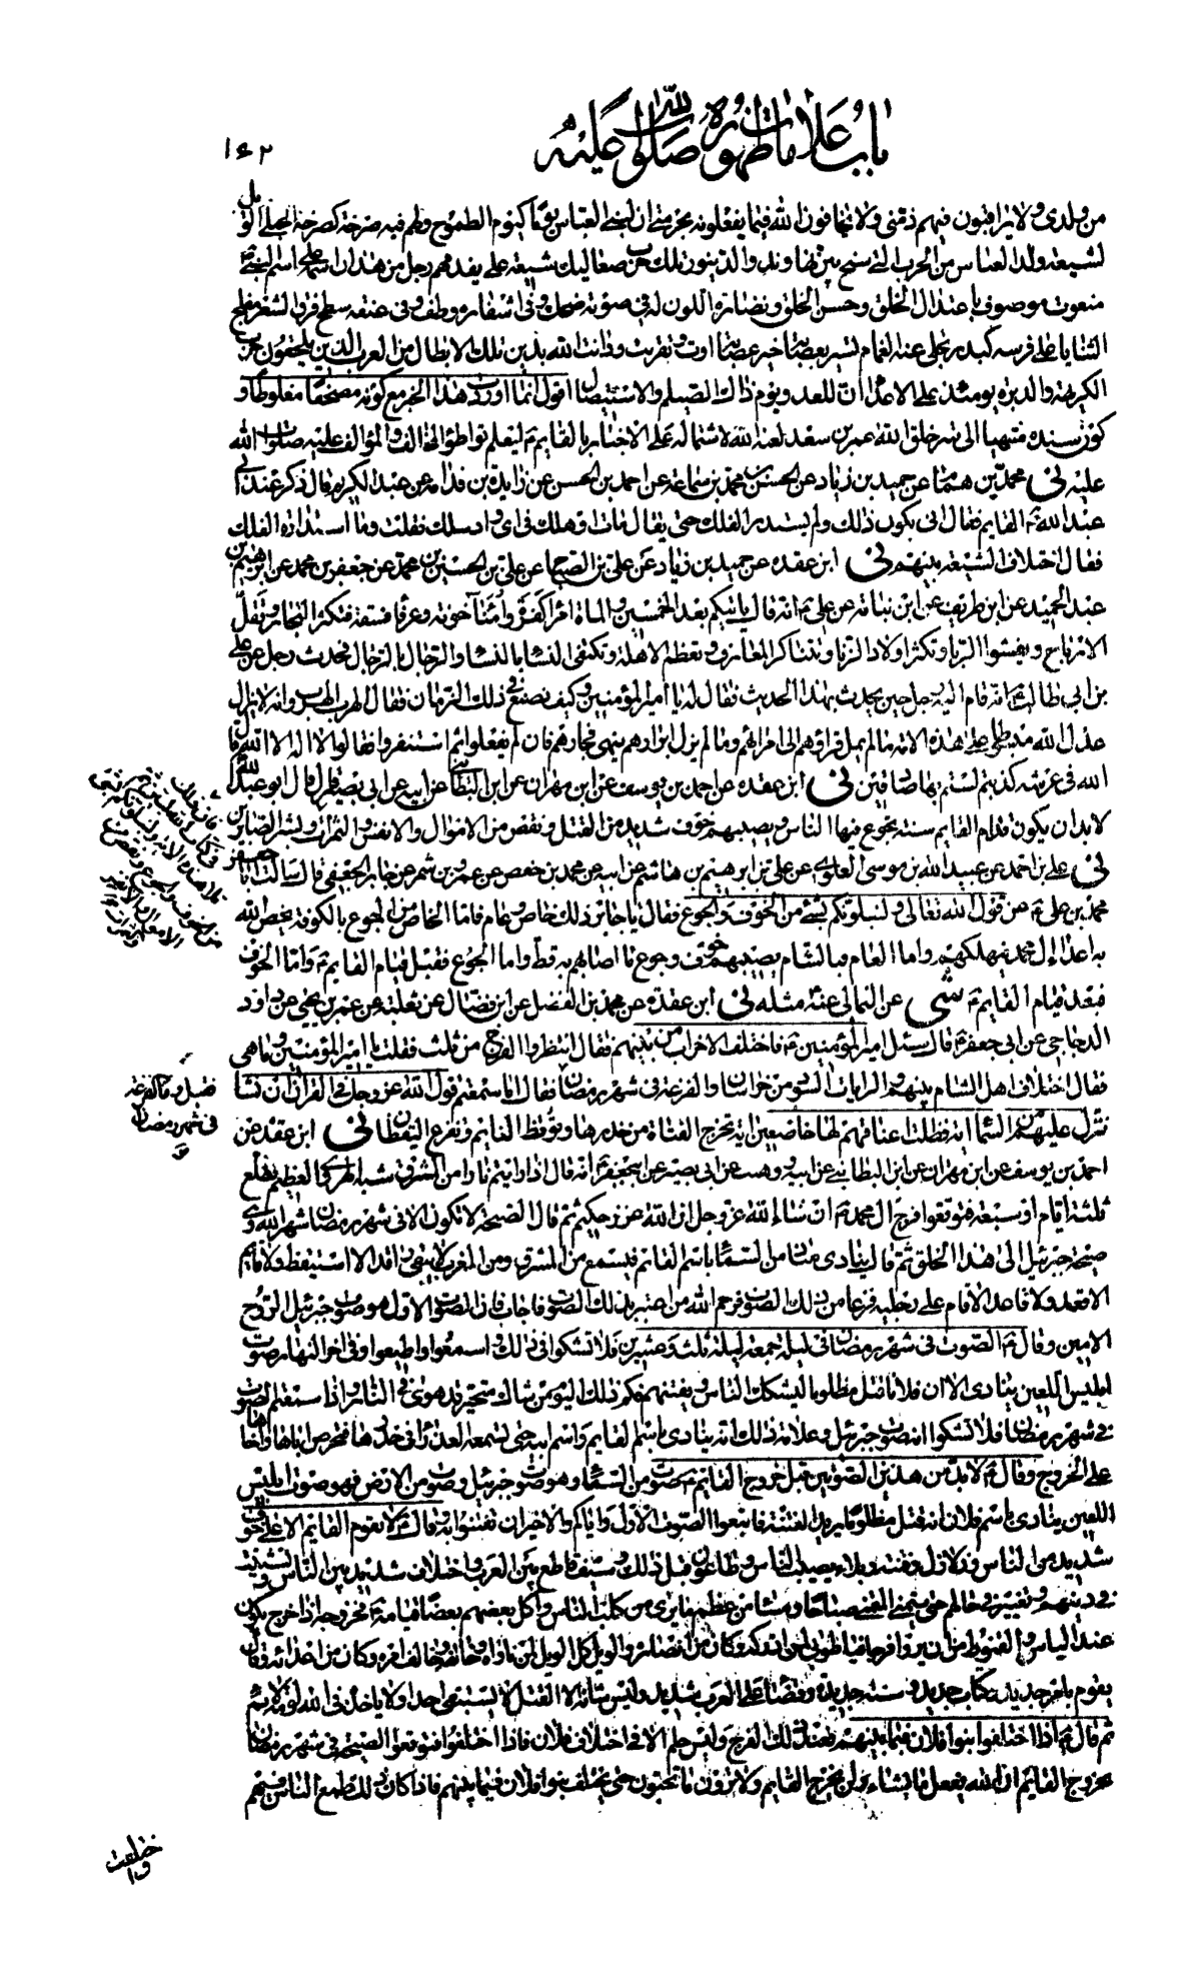 باب علامات ظهوره صلوات الله عليه
١٦٢
من ولدى ولا يراقبون فيهم ذمتى ولا يخافون الله فيما يفعلونه بحرمتى ان لبنى العباس يوما كيوم الطموح ولهم فيه صرخة كصرخة الحبلى الويل
لشيعة ولد العباس من الحرب التى سنح بين نهاوند والدينور تلك حرب صعاليك شيعة على يقدمهم رجل من همدان اسمه على اسم النبى
منعوت موصوف باعتدال الخلق وحسن الخلق ونضارة اللون له فى صوته ضحك وفى اشفاره وطف وفى عنقه سطع فرق الشعر مفلج
الثنايا على فرسه كبدر تجلى عنه الغمام تسير بعصابة خير عصابة اوت وتقربت ودانت لله بدين تلك الابطال من العرب الذين يلحقون حرب
الكريهة والدبرة يومئذ على الاعداء ان للعدو يوم ذاك الصيلم والاستيصال اقول انما اوردت هذا الخبر مع كونه مصحفا مغلوطا و
كون سنده منتهيا الى شر خلق الله عمر بن سعد لعنه الله لاشتماله على الاخبار بالقايم ع ليعلم تواطؤ المخالف والمؤالف عليه صلوات الله
عليه نى محمد بن همام عن حميد بن زياد عن الحسن بن محمد بن سماعة عن احمد بن الحسن عن زايدة بن قدامة عن عبد الكريم قال ذكر عند ابى
عبد الله ع القايم فقال انى يكون ذلك ولم يستدر الفلك حتى يقال مات او هلك فى اى واد سلك فقلت وما استدارة الفلك
فقال اختلاف الشيعة بينهم نى ابن عقدة عن حميد بن زياد عن على بن الصباح عن على بن الحسين بن محمد عن جعفر بن محمد عن ابرهيم بن
عبد الحميد عن ابن طريف عن ابن نباتة عن على ع انه قال ياتيكم بعد الخمسين والمائة امراء كفرة وامناء خونة وعرفاء فسقة فتكثر التجار وتقل
الارباح ويفشوا الربا وتكثر اولاد الزنا وتتناكر المعارف وتعظم الاهلة وتكتفى النساء بالنساء والرجال بالرجال فحدث رجل عن على
بن ابى طالب ع انه قام اليه رجل حين يحدث بهذا الحديث فقال له يا امير المؤمنين وكيف نصنع فى ذلك الزمان فقال الهرب الهرب وانه لا يزال
عدل الله مبسوطا على هذه الامة ما لم يمل قراؤهم الى امرائهم وما لم يزل ابرارهم ينهى فجارهم فان لم يفعلوا ثم استنفروا فقالوا لا اله الا الله قال
الله فى عرشه كذبتم لستم بها صادقين نى ابن عقدة عن احمد بن يوسف عن ابن مهران عن ابن البطائنى عن ابيه عن ابى بصير قال قال ابو عبد الله
لا بد ان يكون قدام القايم سنة يجوع فيها الناس ويصيبهم خوف شديد من القتل ونقص من الاموال والانفس والثمرات وبشر الصابرين
نى على بن احمد عن عبيد الله بن موسى العلوى عن على بن ابرهيم بن هاشم عن ابيه عن محمد بن حفص عن عمرو بن شمر عن جابر الجعفى قال سالت ابا جعفر
محمد بن على ع عن قول الله تعالى ولنبلونكم بشئ من الخوف والجوع فقال يا جابر ذلك خاص وعام فاما الخاص من الجوع بالكوفة يخص الله
به اعداء ال محمد فيهلكهم واما العام فبالشام يصيبهم خوف وجوع ما اصابهم به قط واما الجوع فقبل قيام القايم ع واما الخوف
فبعد قيام القايم ع شى عن الثمالى عنه ع مثله نى ابن عقدة عن محمد بن الفضل عن ابن فضال عن ثعلبة عن عمر بن يحيى عن داود
الدجاجى عن ابى جعفر ع قال سئل امير المؤمنين ع فاختلف الاحزاب من بينهم فقال انتظروا الفرج من ثلث فقلت يا امير المؤمنين وما هى
فقال اختلاف اهل الشام بينهم والرايات السود من خراسان والفزعة فى شهر رمضان فقال اما سمعتم قول الله عز وجل فى القران ان نشا
ننزل عليهم من السماء اية فظلت اعناقهم لها خاضعين اية تخرج الفتاة من خدرها وتوقظ النايم وتفزع اليقظان نى ابن عقدة عن
احمد بن يوسف عن ابن مهران عن ابن البطائنى عن ابيه ووهيب عن ابى بصير عن ابى جعفر ع انه قال اذا رايتم نارا من المشرق شبه الهردى العظيم يطلع
ثلثة ايام او سبعة فتوقعوا فرج ال محمد ع ان شاء الله عز وجل ان الله عزيز حكيم ثم قال الصيحة لا تكون الا فى شهر رمضان شهر الله وهى
صيحة جبرئيل الى هذا الخلق ثم قال ينادى مناد من السماء باسم القايم فيسمع من بالمشرق ومن بالمغرب لا يبقى راقد الا استيقظ ولا قايم
الا قعد ولا قاعد الا قام على رجليه فزعا من ذلك الصوت فرحم الله من اعتبر بذلك الصوت فاجاب فان الصوت الاول هو صوت جبرئيل الروح
الامين وقال ع الصوت فى شهر رمضان فى ليلة جمعة ليلة ثلث وعشرين فلا تشكوا فى ذلك واسمعوا واطيعوا وفى اخر النهار صوت
ابليس اللعين ينادى الا ان فلانا قتل مظلوما ليشكك الناس ويفتنهم فكم ذلك اليوم من شاك متحير قد هوى فى النار واذا سمعتم الصوت
فى شهر رمضان فلا تشكوا انه صوت جبرئيل وعلامة ذلك انه ينادى باسم القايم واسم ابيه حتى تسمعه العذراء فى خدرها فتحرض اباها واخاها
على الخروج وقال ع لا بد من هذين الصوتين قبل خروج القايم ع صوت من السماء وهو صوت جبرئيل وصوت من الارض فهو صوت ابليس
اللعين ينادى باسم فلان انه قتل مظلوما يريد الفتنة فاتبعوا الصوت الاول واياكم والاخير ان تفتنوا به وقال ع لا يقوم القايم الا على خوف
شديد من الناس وزلازل وفتنة وبلاء يصيب الناس وطاعون قبل ذلك وسيف قاطع بين العرب واختلاف شديد بين الناس وتشتيت
فى دينهم وتغيير فى حالهم حتى يتمنى المتمنى صباحا ومساء من عظم ما يرى من كلب الناس واكل بعضهم بعضا فقيامه ع فخروجه اذا خرج يكون
عند الياس والقنوط من ان يروا فرجا فيا طوبى لمن ادركه وكان من انصاره والويل كل الويل لمن ناواه وخالفه وخالف امره وكان من اعدائه وقال
يقوم بامر جديد وكتاب جديد وسنة جديدة وقضاء على العرب شديد وليس شانه الا القتل لا يستبقى احدا ولا ياخذه فى الله لومة لائم
ثم قال ع اذا اختلفوا بنو فلان فيما بينهم فعند ذلك الفرج وليس فرجكم الا فى اختلاف بنى فلان فاذا اختلفوا فتوقعوا الصيحة فى شهر رمضان
بخروج القايم ان الله يفعل ما يشاء ولن يخرج القايم ولا ترون ما تحبون حتى يختلف بنو فلان فيما بينهم فاذا كان ذلك طمع الناس فيهم
فقيل وما الفزعة
فى شهر رمضان
واختلفت